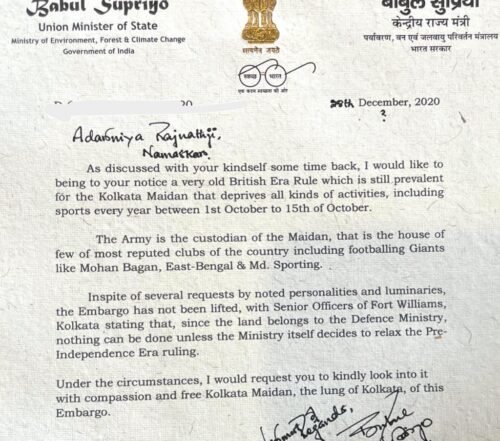 Babul Supriyo
Union Minister of State
Ministry of Environment, Forest & Climate Change
Government of India
बाबुल सुप्रियो
केन्द्रीय राज्य मंत्री
पर्यावरण, वन एवं जलवायु परिवर्तन मंत्रालय
भारत सरकार
सत्यमेव जयते
स्वच्छ भारत
एक कदम स्वच्छता की ओर
28th December, 2020
?
Adarniya Rajnathji,
Namaskar
As discussed with your kindself some time back, I would like to
being to your notice a very old British Era Rule which is still prevalent
for the Kolkata Maidan that deprives all kinds of activities, including
sports every year between 1st October to 15th of October.
The Army is the custodian of the Maidan, that is the house of
few of most reputed clubs of the country including footballing Giants
like Mohan Bagan, East-Bengal & Md. Sporting.
Inspite of several requests by noted personalities and luminaries,
the Embargo has not been lifted, with Senior Officers of Fort Williams,
Kolkata stating that, since the land belongs to the Defence Ministry,
nothing can be done unless the Ministry itself decides to relax the Pre-
Independence Era ruling.
Under the circumstances, I would request you to kindly look into it
with compassion and free Kolkata Maidan, the lung of Kolkata, of this
Embargo.
regards,